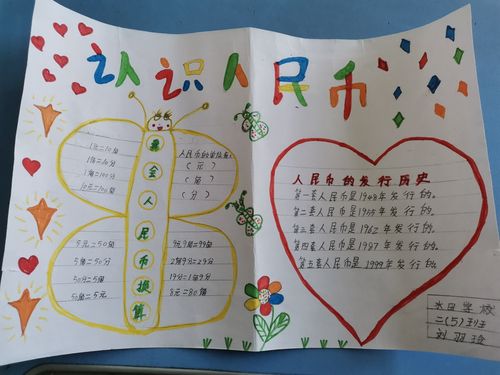 认识人民币
金人民币换算
1元=10角
1角=10分
10元=100角
人民币的单位有:
(元)
(角)
(分)
5元=50角
5角=50分
50分=5角
50角=5元
9元9角=99角
2角9分=29分
19分=1角9分
8元=80角
人民币的发行历史
第一套人民币是1948年发行的。
第二套人民币是1955年发行的。
第三套人民币是1962年发行的。
第四套人民币是1987年发行的。
第五套人民币是1999年发行的。
学校
二(5)班
刘羽